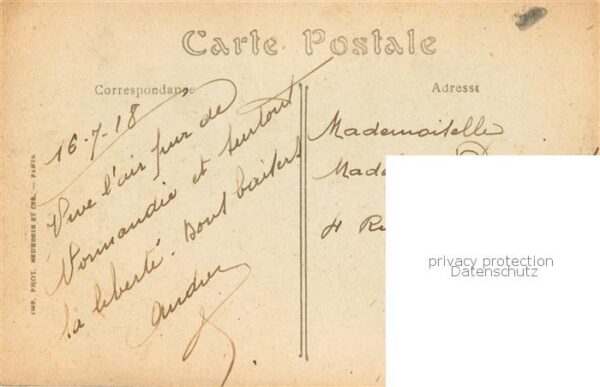 Carte Postale
Correspondance
Adresse
16-7-18
Vive l'air pur de
Normandie et surtout
la liberté. Bons baisers
Andrée
Mademoiselle
Made
4 Ru
privacy protection
Datenschutz
IMP. PHOT. NEURDEIN ET CIE. — PARIS